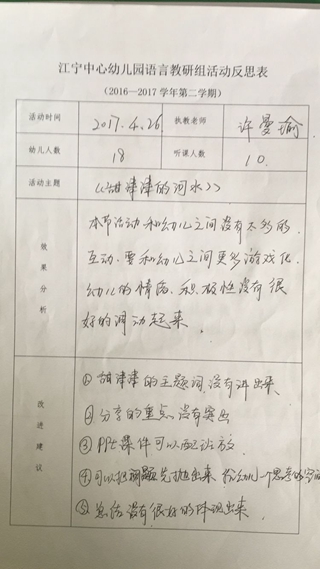 江宁中心幼儿园语言教研组活动反思表
（2016—2017学年第二学期）
活动时间 2017.4.26 执教老师 许曼瑜
幼儿人数 18 听课人数 10.
活动主题 《甜津津的河水》
效果分析
本节活动和幼儿之间没有太多的
互动、要和幼儿之间更多游戏化.
幼儿的情绪、积极性没有很
好的调动起来.
改进建议
①甜津津的主题词没有讲出来
②分享的重点没有突出
③PPt课件可以配班放
④可以把问题先抛出来 给幼儿一个思考的
⑤总结没有很好的体现出来.